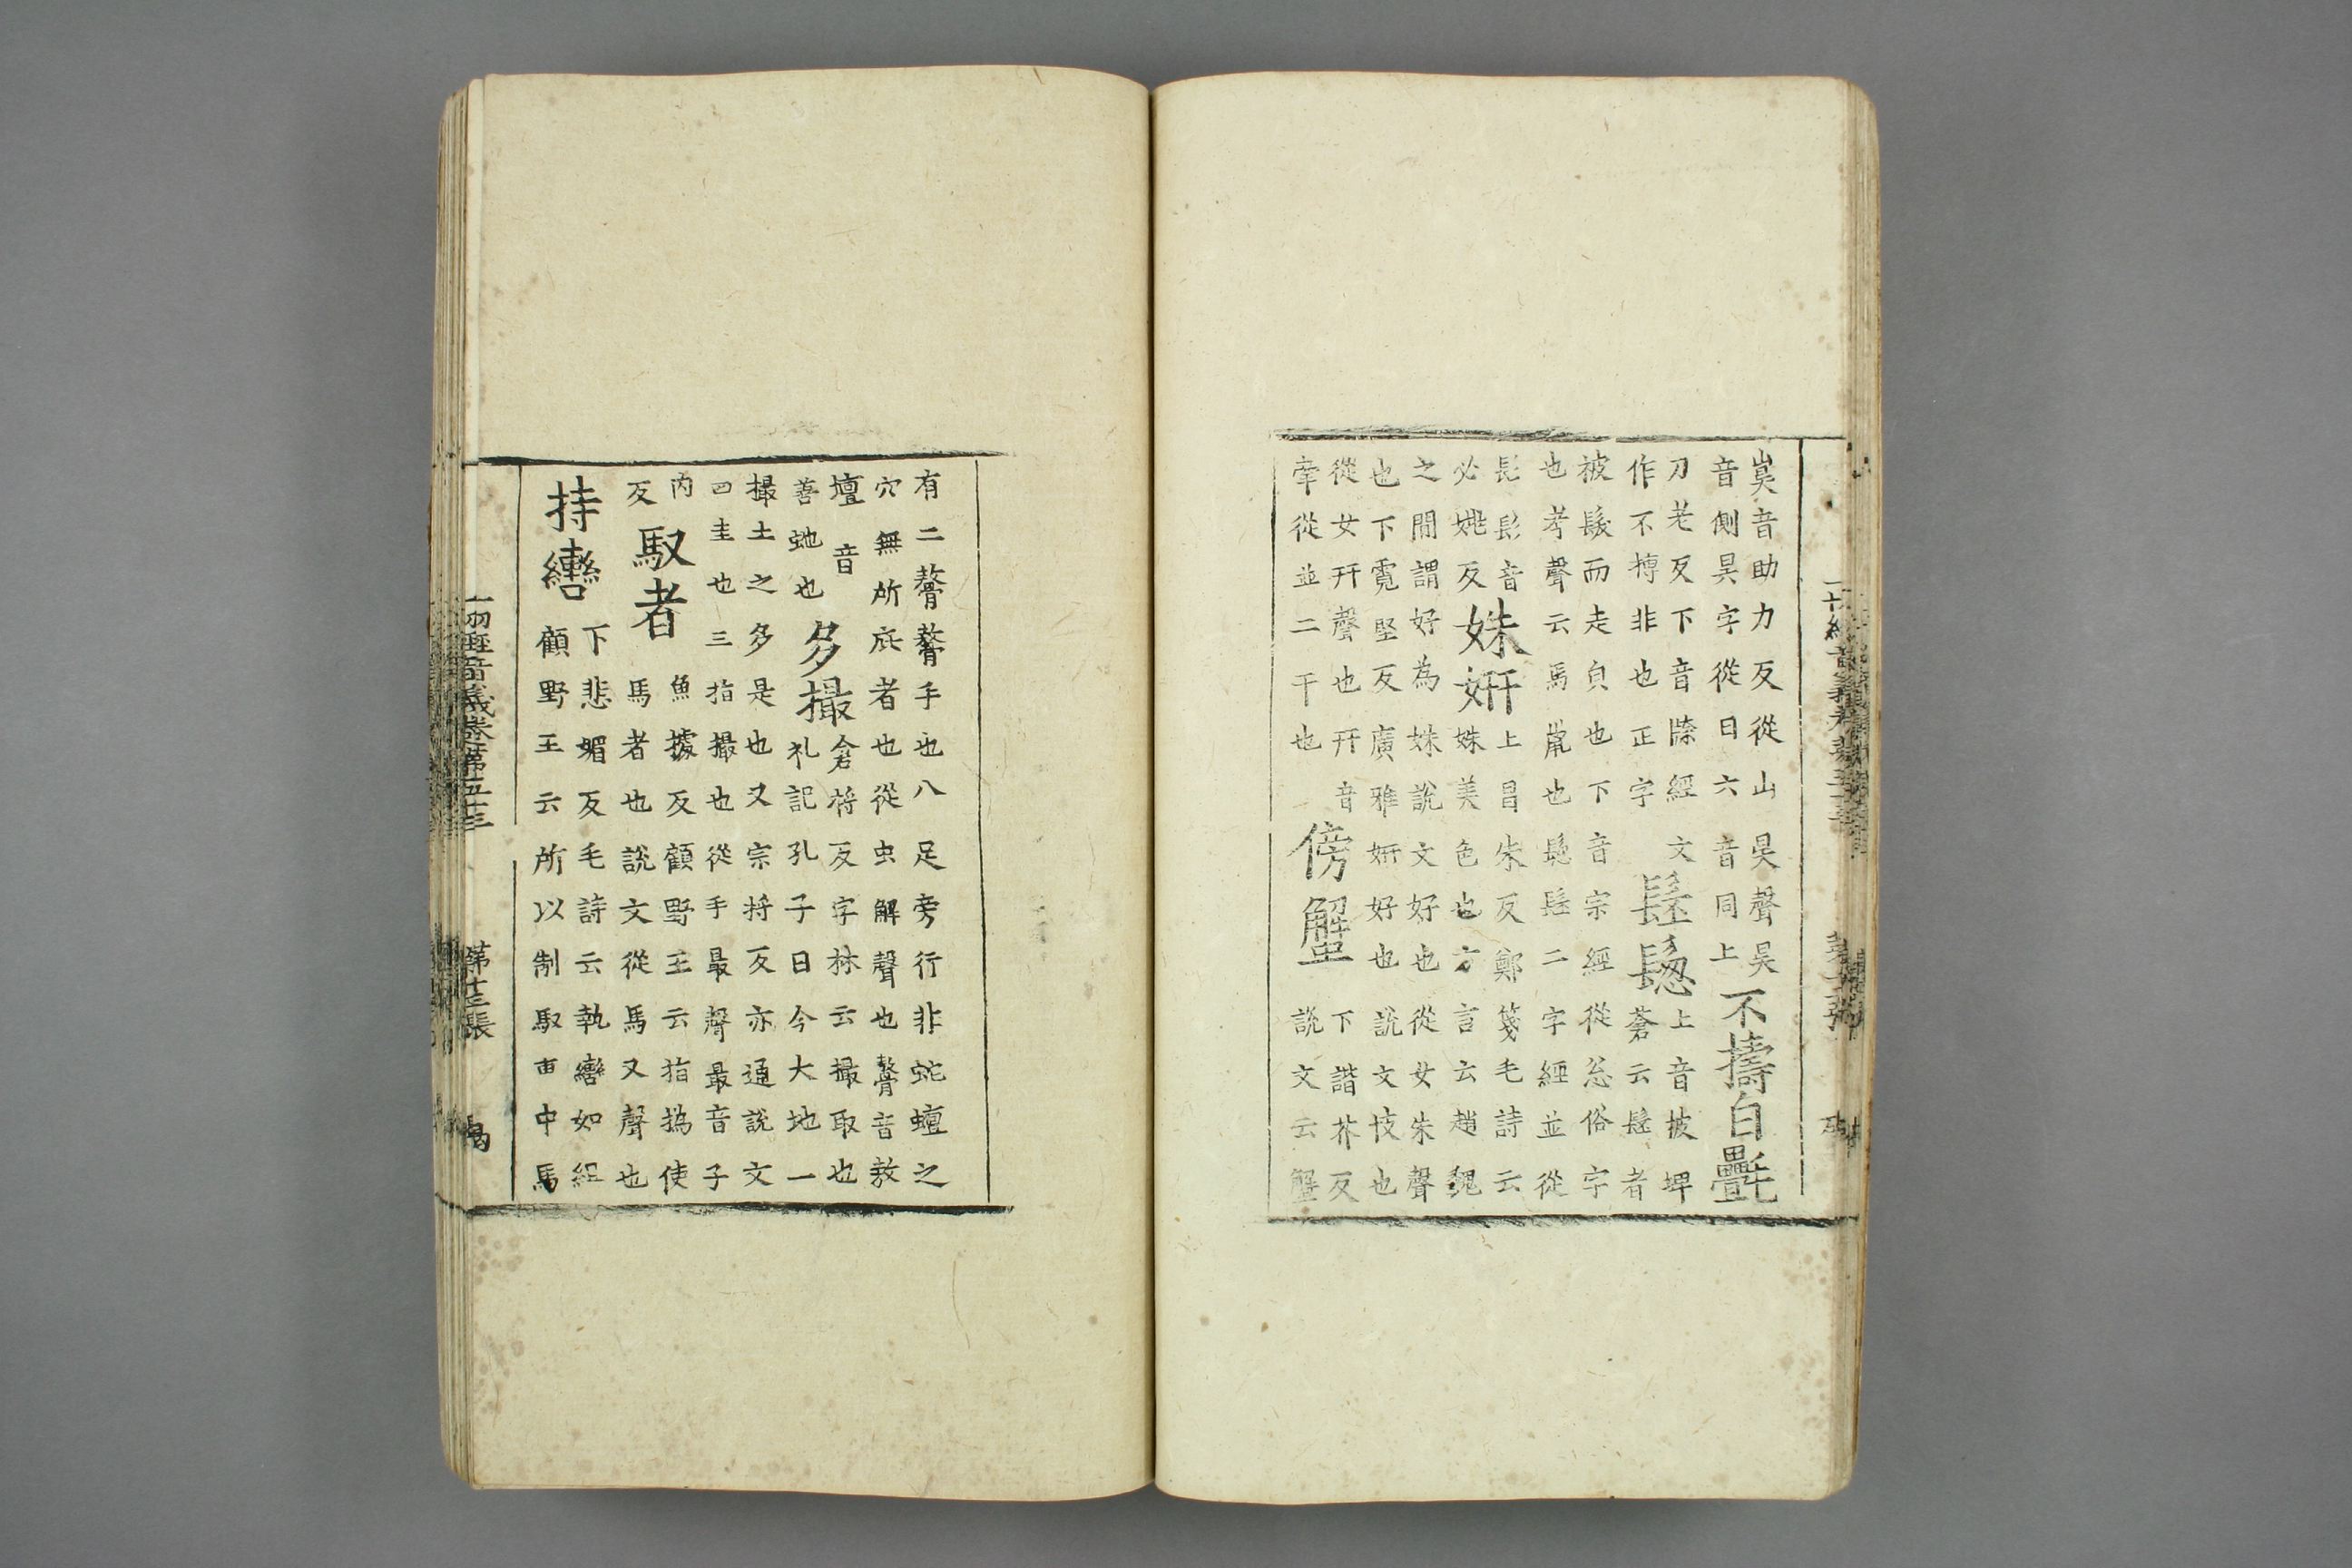 崱音助力反從山㚖聲㚖
音側昃字從日六音同上不擣白㲲
刀老反下音牒經文
作不搏非也正字髬䰄上音披埤蒼云髬者
被髮而走皃也下音宗經從忩俗字
也考聲云馬鬣也髬䰄二字經並從
髟髟音必姚反姝妍上昌朱反鄭箋毛詩云
姝美色也方言云趙魏
之間謂好為姝說文好也從女朱聲
也下霓堅反廣雅妍好也說文技也
從女幵聲也幵音
牽從並二干也傍蟹下諧芥反
說文云蟹
有二螯螯手也八足旁行非蛇蟺之
穴無所庇者也從虫解聲也螯音敖
蟺音
善虵也多撮倉捋反字林云撮取也
礼記孔子曰今大地一
撮土之多是也又宗捋反亦通說文
四圭也三指撮也從手最聲最音子
內
反馭者魚據反顧野王云指撝使
馬者也說文從馬又聲也
持轡下悲媚反毛詩云執轡如組
顧野王云所以制馭車中馬
一切經音義卷第五十三 第十三張